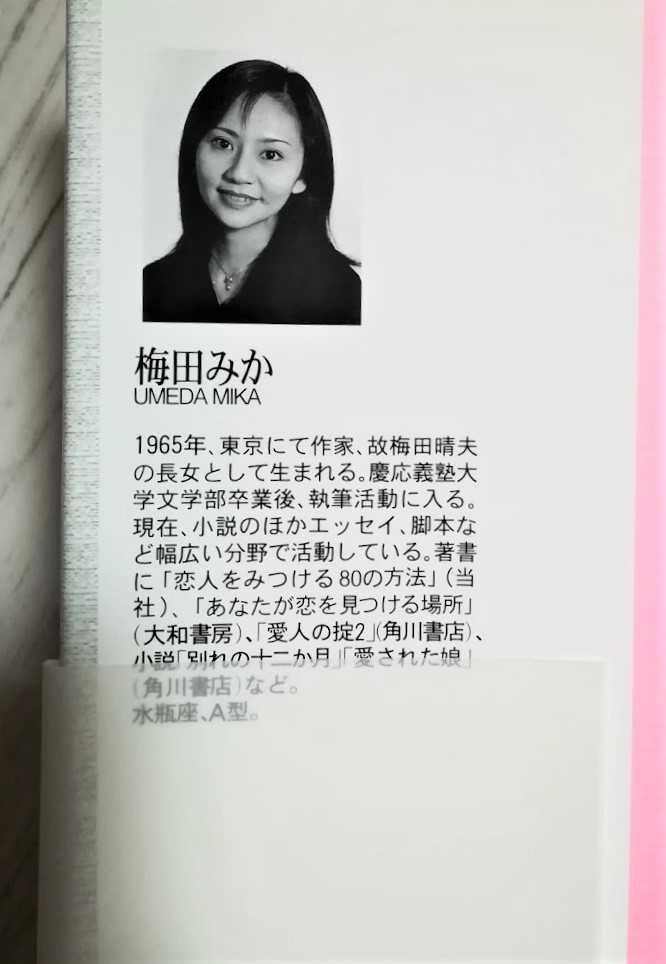 梅田みか
UMEDA MIKA
1965年、東京にて作家、故梅田晴夫
の長女として生まれる。慶応義塾大
学文学部卒業後、執筆活動に入る。
現在、小説のほかエッセイ、脚本な
ど幅広い分野で活動している。著書
に「恋人をみつける80の方法」(当
社)、「あなたが恋を見つける場所」
(大和書房)、「愛人の掟2」(角川書店)、
小説「別れの十二か月」「愛された娘」
(角川書店)など。
水瓶座、A型。